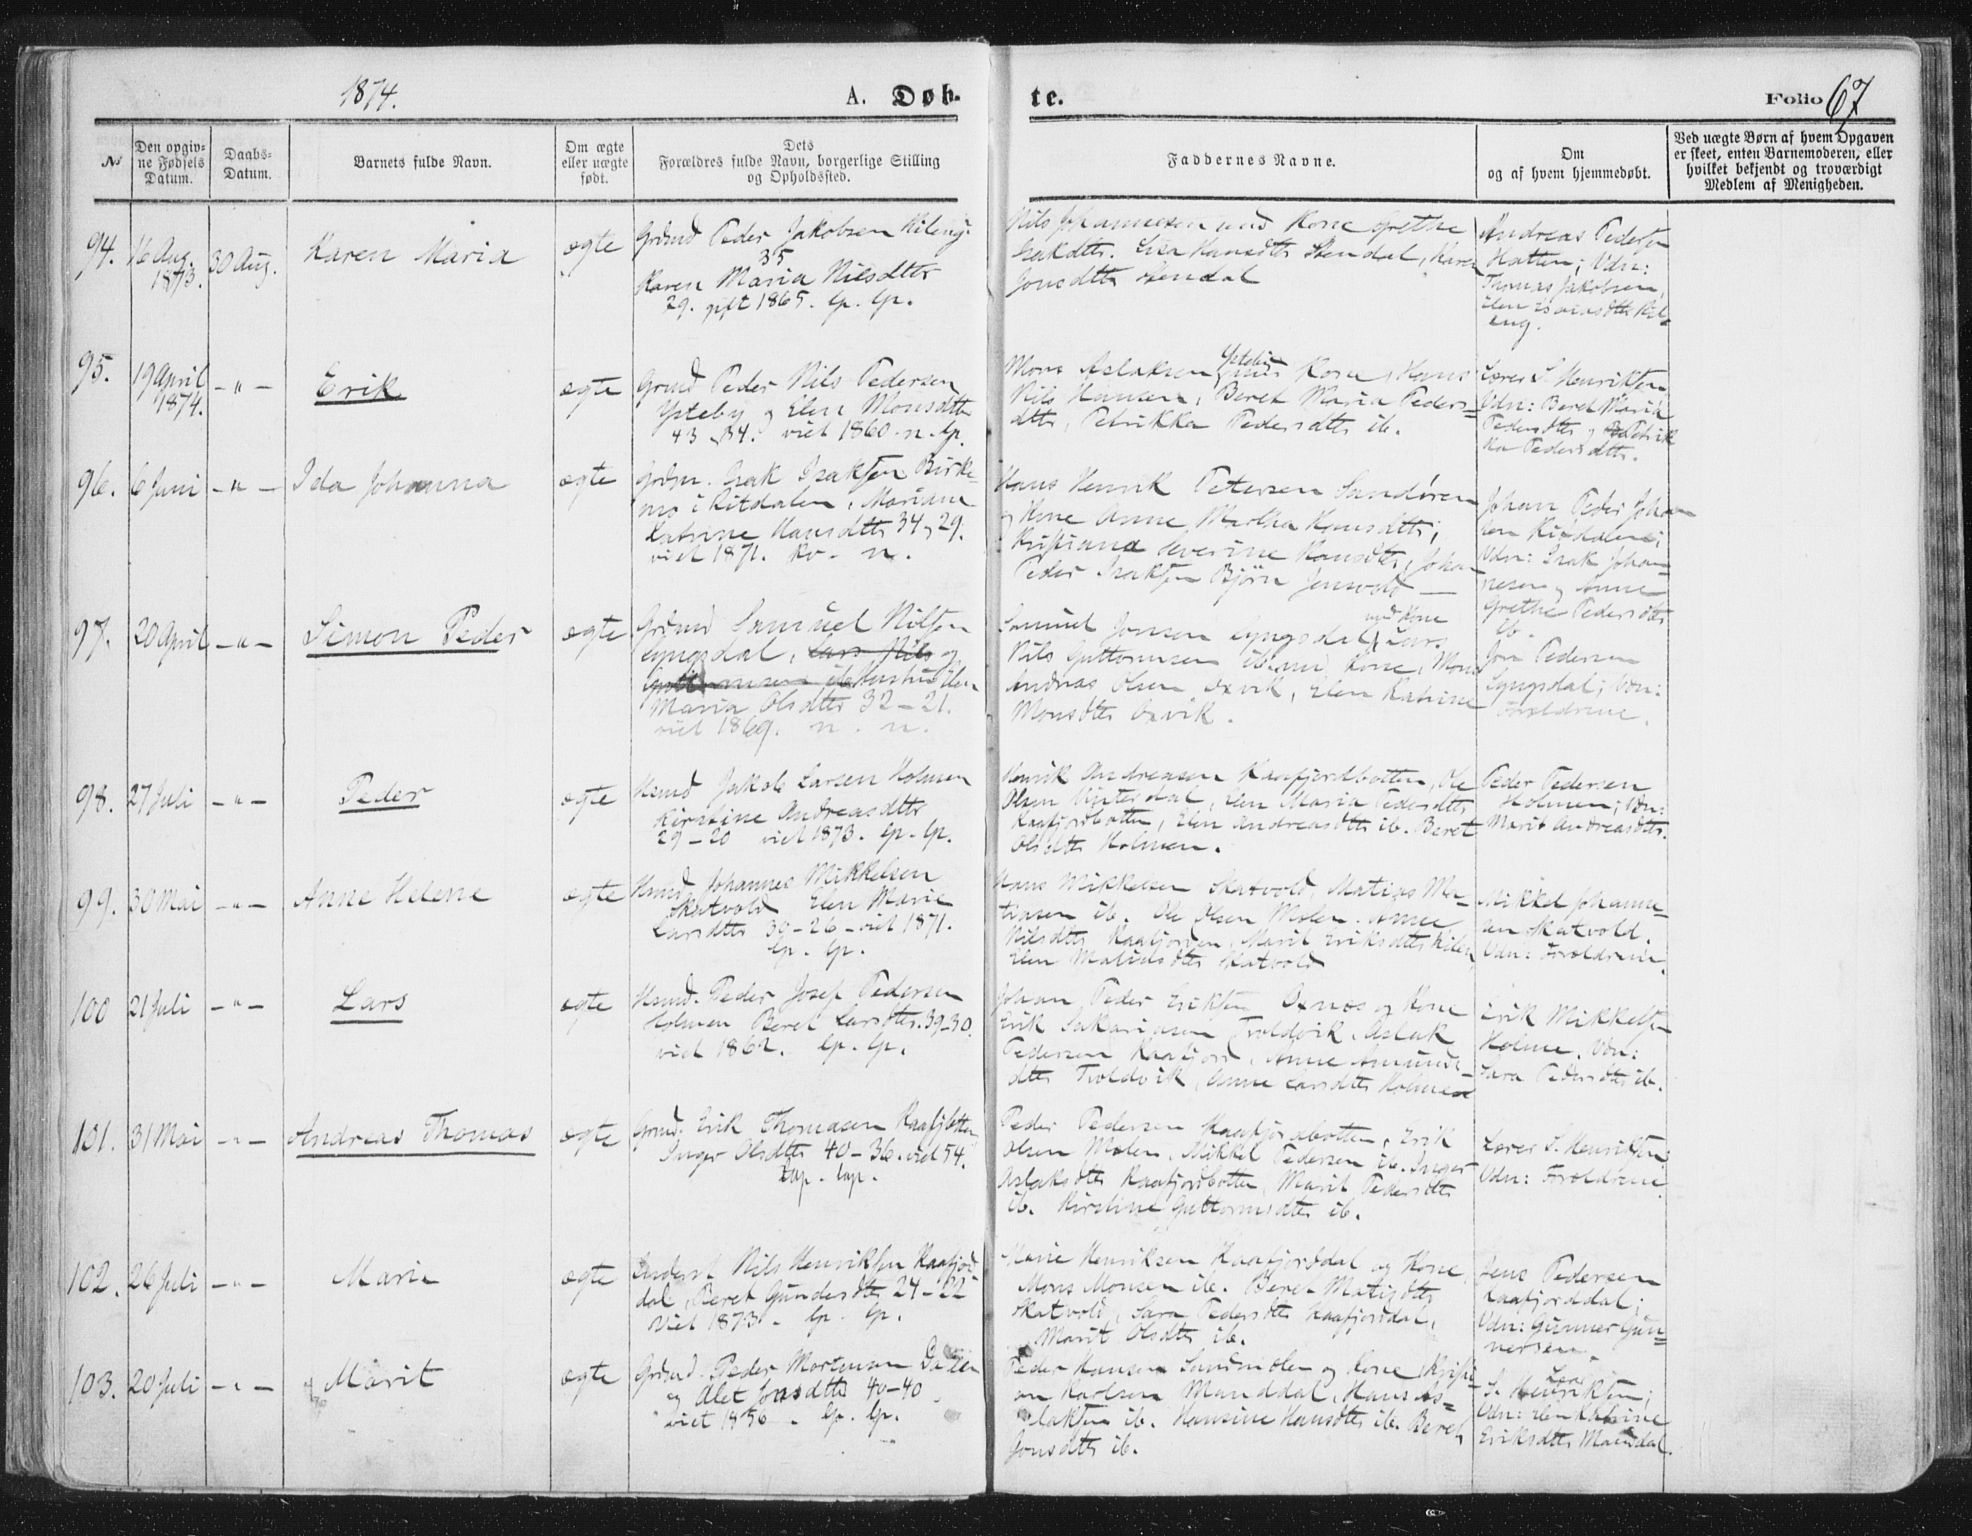 1874.
A. Døb-
te.
Folio 67
№
Den opgiv-
ne Fødsels
Datum.
Daabs-
Datum.
Barnets fulde Navn.
Om ægte
eller uægte
født.
Dets
Forældres fulde Navn, borgerlige Stilling
og Opholdssted.
Faddernes Navne.
Om
og af hvem hjemmedøbt.
Ved uægte Børn af hvem Opgaven
er skeet, enten Barnemoderen, eller
hvilket bekjendt og troværdigt
Medlem af Menigheden.
94. 16 Aug. 1873. 30 Aug. Karen Maria ægte
Grdmd Peder Jakobsen Kileng
35
Karen Maria Nilsdtr
29. gift 1865. lp. lp.
Nils Johannesen med Kone Grethe
Isakdtr. Lisa Hansdtr Stendal, Karen
Jonsdtr Stendal
Andreas Pedersen
Hatten; Vdn:
Thomas Jakobsen,
95. 19 April 1874. -"- Erik ægte
Grmd Peder Nils Pedersen
Ysteby og Elen Monsdtr
43-34. viet 1860. n. lp.
Mons Aslaksen Ysteby med Kone, Hans
Nils Hansen, Beret Maria Peders-
dtr, Petrikka Pedersdtr ib.
Lærer S. Henriksen
Vdn: Beret Maria
Pedersdtr og Petrik
ka Pedersdtr.
96. 6 Juni -"- Ida Johanna ægte
Grdm. Isak Isaksen Birke-
mo i Kitdalen, Mariana
Katrine Hansdtr 34, 29.
viet 1871. kv. n.
Hans Henrik Petersen Sandøren
og Kone Anne Martha Hansdtr;
Kristiana Severine Hansdtr, Johan
Peder Isaksen Bjørn Jensvold —
Johan Peder Johan
sen Kitdalen;
Vdn: Isak Johan-
nesen og Anne
Grethe Pedersdtr
ib.
97. 20 April -"- Simon Peder ægte
Grdmd Samuel Nilsen
Lyngsdal, Lars Nils og
Hustru Elen
Maria Olsdtr 32-21.
viet 1869. n. n.
Samuel Jonsen Lyngsdal med Kone, Lars
Nils Guttormsen ib. med Kone, Mons
Andreas Olsen Oxvik, Elen Katrine
Monsdtr Oxvik.
Jon Pedersen
Lyngsdal; Vdn:
Forældrene.
98. 27 Juli -"- Peder ægte
Hsmd Jakob Larsen Holmen
Kirstine Andreasdtr
29-20 viet 1873. lp. lp.
Henrik Andreasen Kaafjordbotten, Ole
Olsen Vintersdal, Elen Maria Pedersdtr
Kaafjordbotten, Elen Andreasdtr ib. Beret
Olsdtr Holmen.
Peder Pedersen
Holmen; Vdn:
Marit Andreasdtr.
99. 30 Mai -"- Anne Helene ægte
Hsmd Johannes Mikkelsen
Skatvold Elen Marie
Larsdtr 39-26-viet 1871.
lp. lp.
Hans Mikkelsen Skatvold, Matias Ma-
tiasen ib. Ole Olsen Molen. Anne
Nilsdtr Kaafjorden, Marit Eriksdtr
Elen Matiasdtr Skatvold
Mikkel Johanne-
sen Skatvold.
Vdn: Forældrene.
100 21 Juli -"- Lars ægte
Hsmd. Peder Josef Pedersen
Holmen Beret Larsdtr. 39-30.
viet 1862. lp. lp.
Johan Peder Eriksen Oxnes og Kone
Erik Sakariasen Troldvik, Aslak
Pedersen Kaafjord, Anne Amunds-
dtr Troldvik, Anne Larsdtr Holmen
Erik Mikkelsen
Holme. Vdn:
Sara Pedersdtr ib.
101. 31 Mai -"- Andreas Thomas ægte
Grmd. Erik Thomasen Kaafjbotten
Inger Olsdtr 40-36. viet 54.
lap. lap.
Peder Pedersen Kaafjordbotten, Erik
Olsen Molen, Mikkel Pedersen ib. Inger
Aslaksdtr Kaafjordbotten, Marit Pedersdtr
ib. Kirstine Guttormsdtr ib.
Lærer S. Henriksen;
Vdn: Forældrene
102. 26 Juli -"- Marie ægte
Inderst Nils Henriksen Kaafjord
dal, Beret Gundersdtr 24-22
viet 1873. lp. lp.
Henriksen Kaafjorddal og Kone,
Mons Monsen ib. Beret Matisdtr
Skatvold, Sara Pedersdtr Kaafjorddal,
Marit Olsdtr ib.
Jens Pedersen
Kaafjorddal;
Vdn: Gunner Gun-
nersen.
103. 20 Juli -"- Marit ægte
Grdmd. Peder Mortensen Dalen
og Alet Jonsdtr 40-40
viet 1856. lp. lp.
Peder Hansen Sandmolen og Kone, Kristi-
an Karlsen Manddal, Hans As-
laksen ib. Hansine Hansdtr ib. Beret
Jonsdtr ib.
Lærer
S. Henriksen;
Vdn: Elen Katrine
Eriksdtr Manddal.